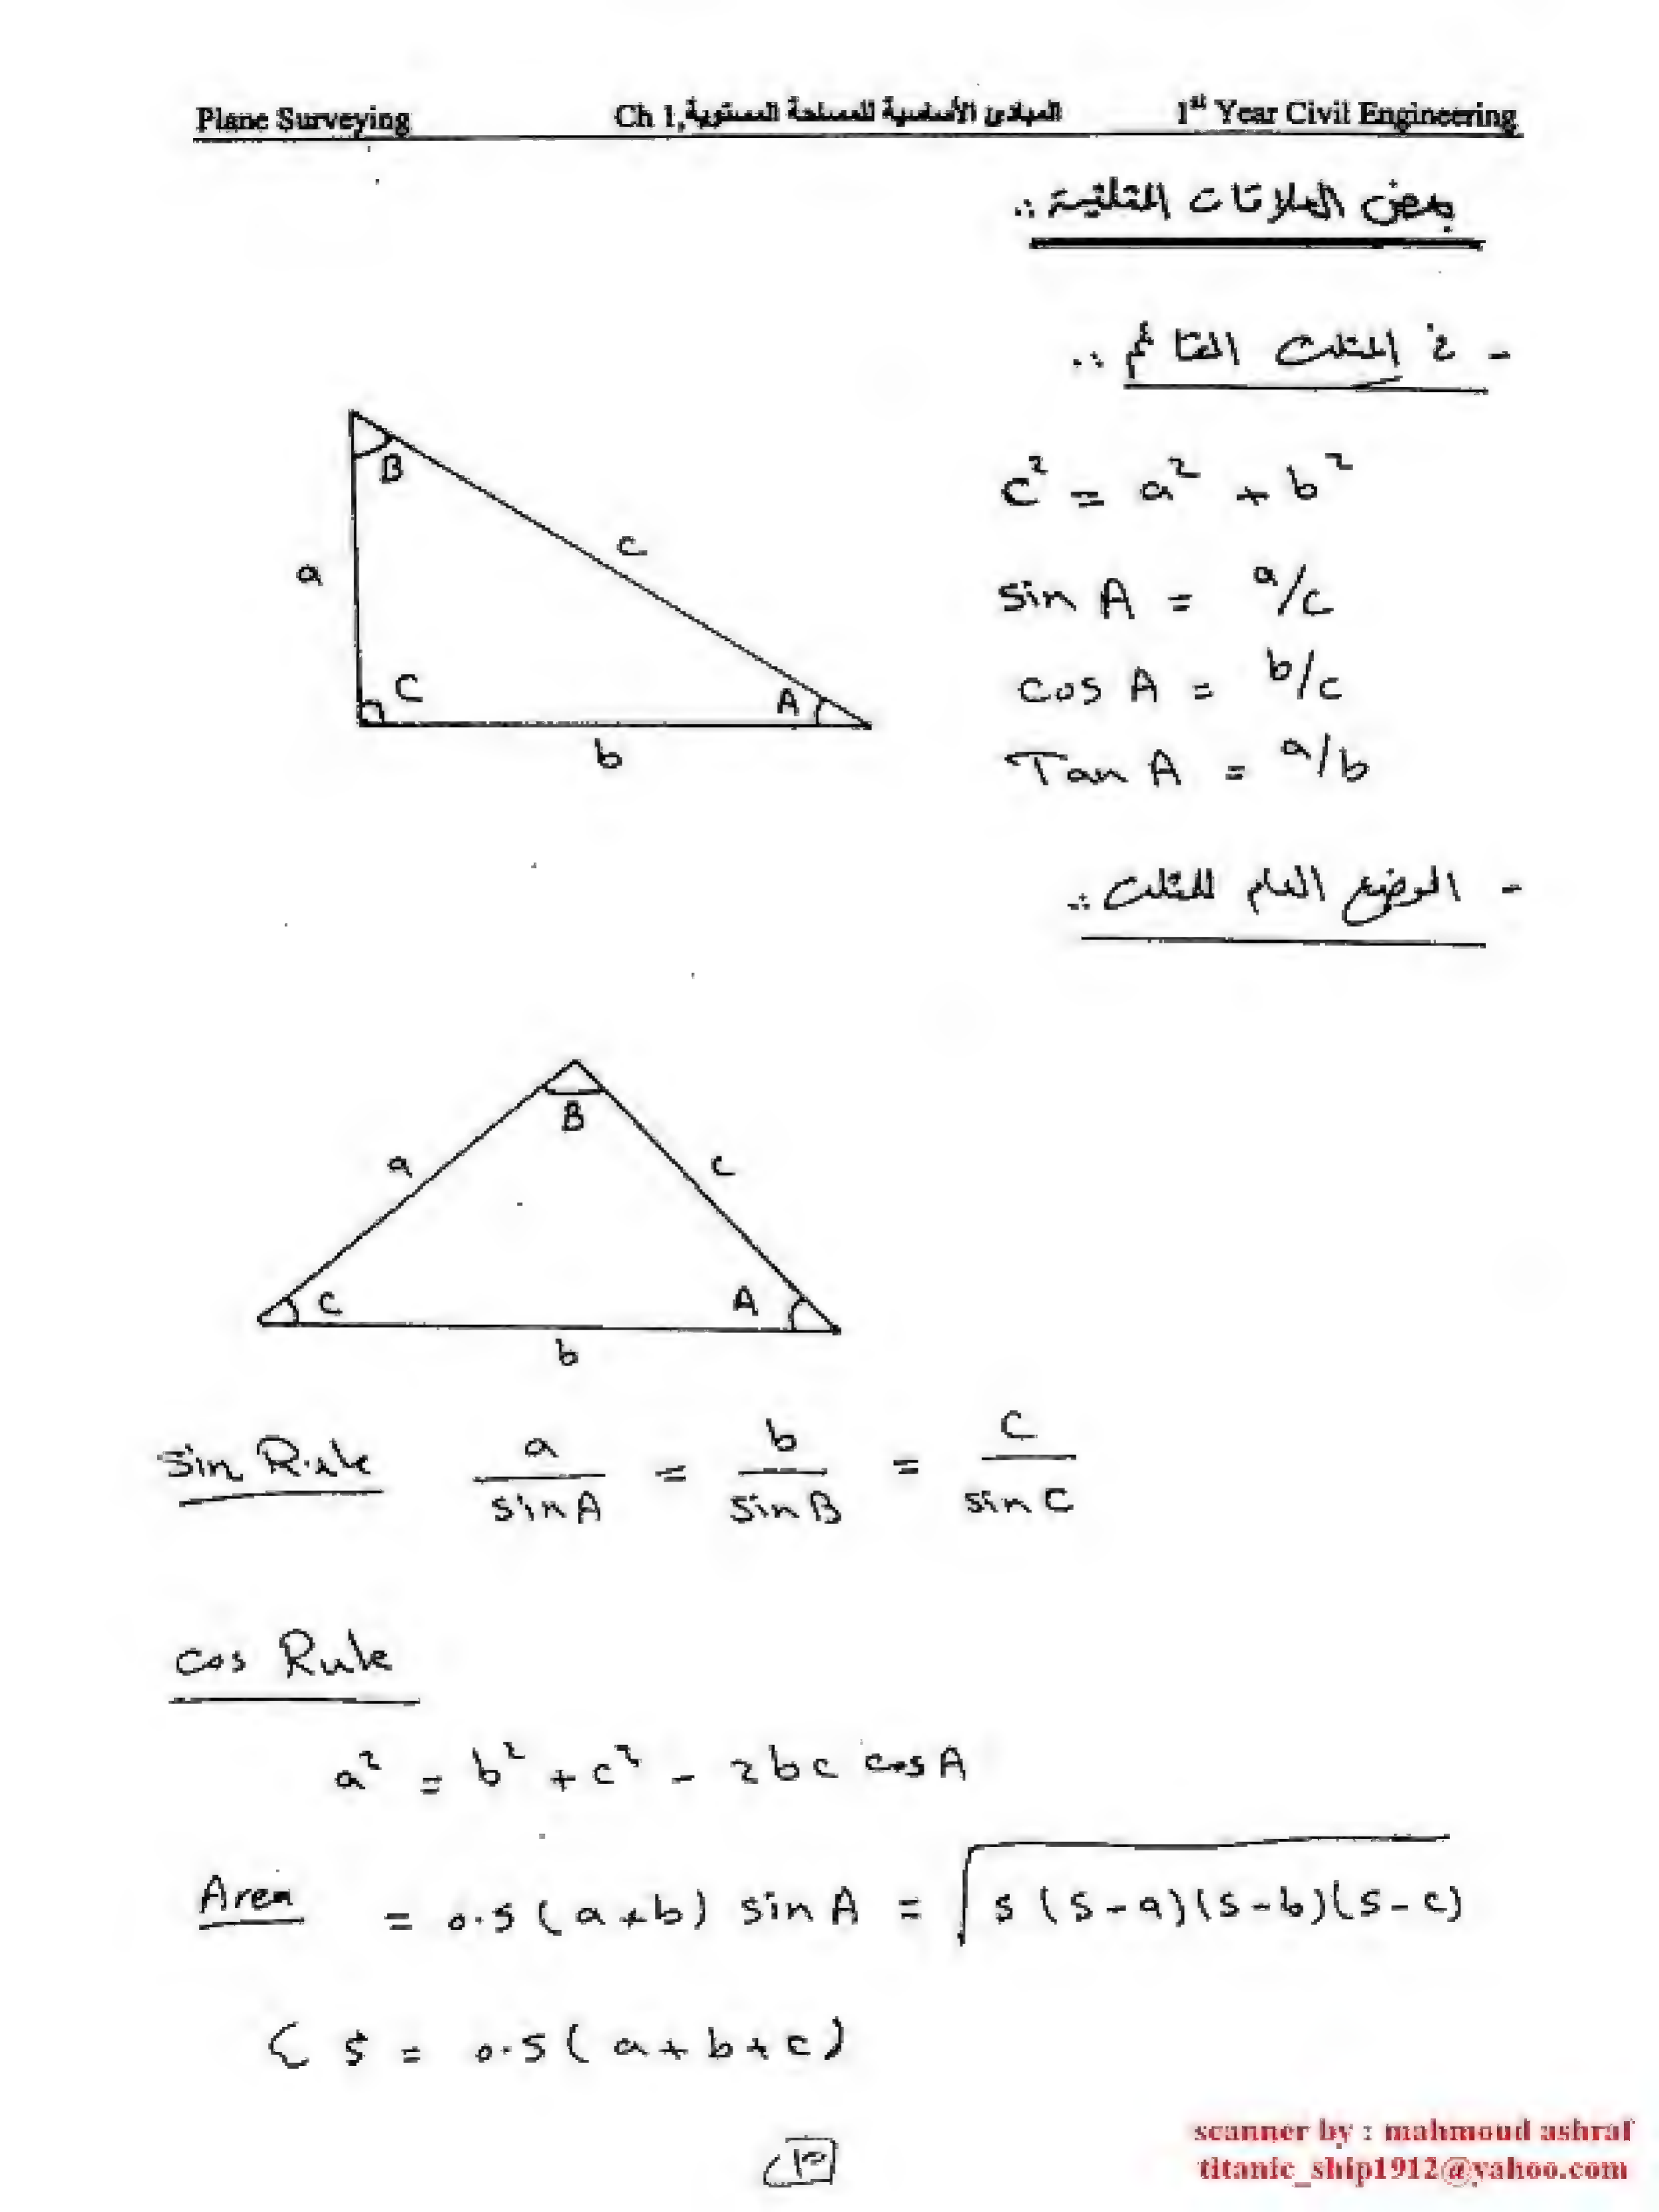 Plane Surveying Ch 1,المبادئ الأساسية للمساحة المستوية 1st Year Civil Engineering
بعض العلاقات المثلثية :.
- في المثلث القائم :.
B
a
c
C
A
b
c² = a² + b²
sin A = a/c
cos A = b/c
Tan A = a/b
- الوضع العام للمثلث :.
B
a
c
C
A
b
Sin Rule a/sin A = b/sin B = c/sin C
cos Rule
a² = b² + c² - 2bc cos A
Area = 0.5 (a+b) sin A = √s(s-a)(s-b)(s-c)
{ s = 0.5 (a+b+c)
scanner by : mahmoud ashraf
titanic_ship1912@yahoo.com